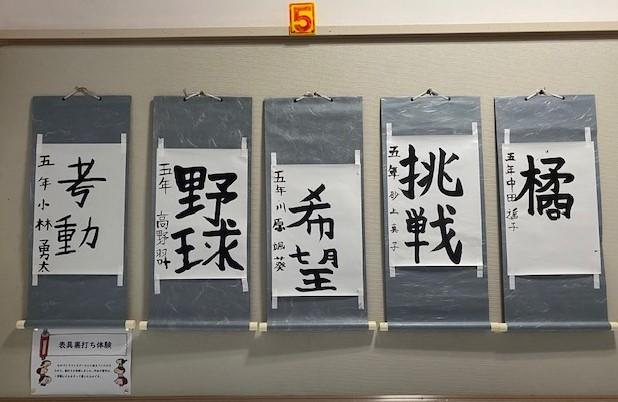 5
考動
五年 小林勇太
野球
五年 高野
希望
五年 川原颯葵
挑戦
五年 砂上真子
橘
五年 中田 子
表具裏打ち体験